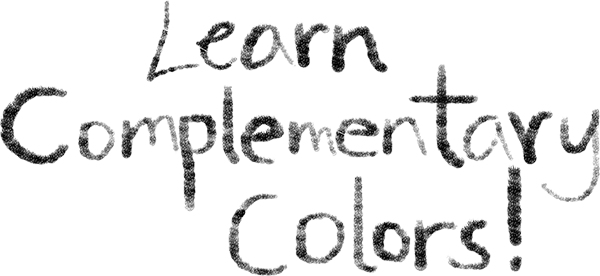 Learn
Complementary
Colors!